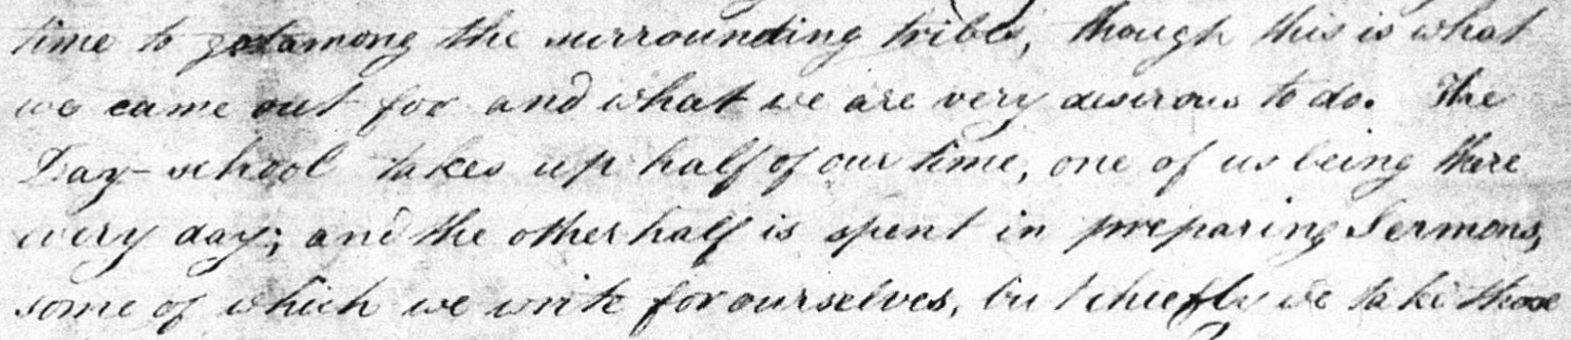 time to get among the surrounding tribes, though this is what
we came out for and what we are very desirous to do. The
Day-school takes up half of our time, one of us being there
every day; and the other half is spent in preparing Sermons,
some of which we write for ourselves, but chiefly we take those